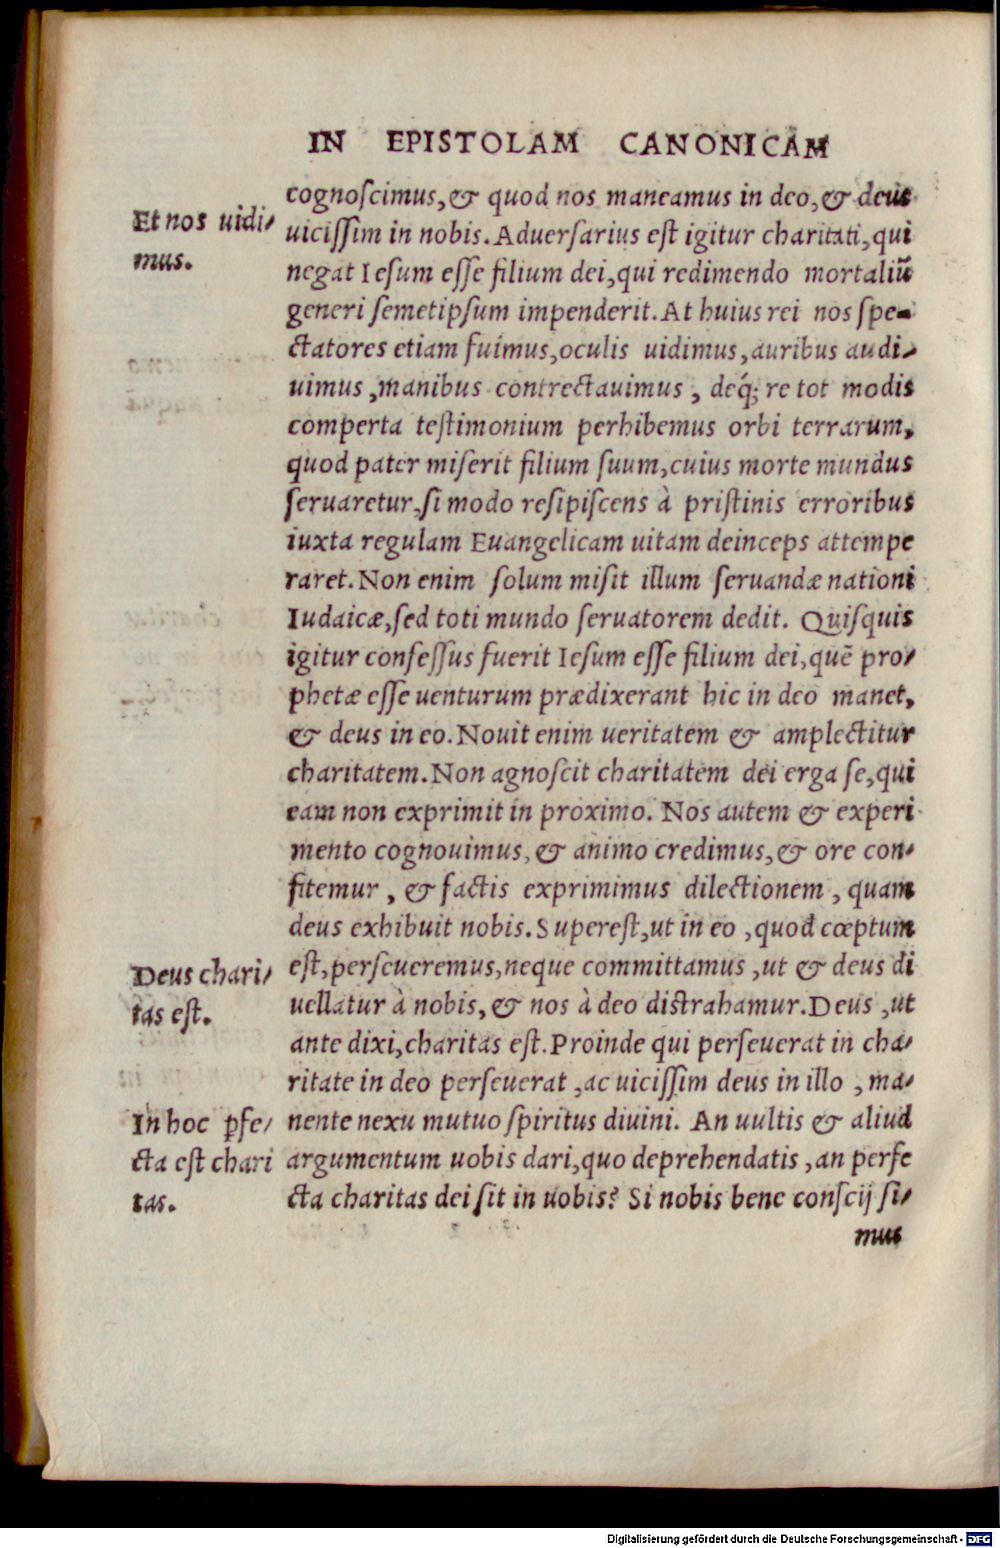 IN EPISTOLAM CANONICAM
Et nos uidi-
mus.
cognoſcimus, & quod nos maneamus in deo, & deus
uiciſſim in nobis. Aduerſarius eſt igitur charitati, qui
negat Ieſum eſſe filium dei, qui redimendo mortaliū
generi ſemetipſum impenderit. At huius rei nos ſpe-
ctatores etiam fuimus, oculis uidimus, auribus audi-
uimus, manibus contrectauimus, deq́; re tot modis
comperta teſtimonium perhibemus orbi terrarum,
quod pater miſerit filium ſuum, cuius morte mundus
ſeruaretur, ſi modo reſipiſcens à priſtinis erroribus
iuxta regulam Euangelicam uitam deinceps attempe
raret. Non enim ſolum miſit illum ſeruandæ nationi
Iudaicæ, ſed toti mundo ſeruatorem dedit. Quiſquis
igitur confeſſus fuerit Ieſum eſſe filium dei, quē pro-
phetæ eſſe uenturum prædixerant hic in deo manet,
& deus in eo. Nouit enim ueritatem & amplectitur
charitatem. Non agnoſcit charitatem dei erga ſe, qui
eam non exprimit in proximo. Nos autem & experi
mento cognouimus, & animo credimus, & ore con-
fitemur, & factis exprimimus dilectionem, quam
deus exhibuit nobis. Supereſt, ut in eo, quod cœptum
Deus chari-
tas eſt.
eſt, perſeueremus, neque committamus, ut & deus di
uellatur à nobis, & nos à deo diſtrahamur. Deus, ut
ante dixi, charitas eſt. Proinde qui perſeuerat in cha-
ritate in deo perſeuerat, ac uiciſſim deus in illo, ma-
In hoc ꝑfe-
cta eſt chari
tas.
nente nexu mutuo ſpiritus diuini. An uultis & aliud
argumentum uobis dari, quo deprehendatis, an perfe
cta charitas dei ſit in uobis? Si nobis bene conſcij ſi-
mus
Digitalisierung gefördert durch die Deutsche Forschungsgemeinschaft - DFG